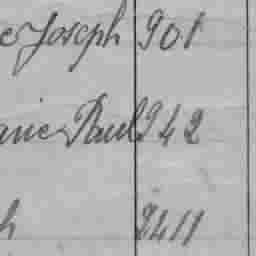 e Joseph 901
arie Paul 942
h 2411